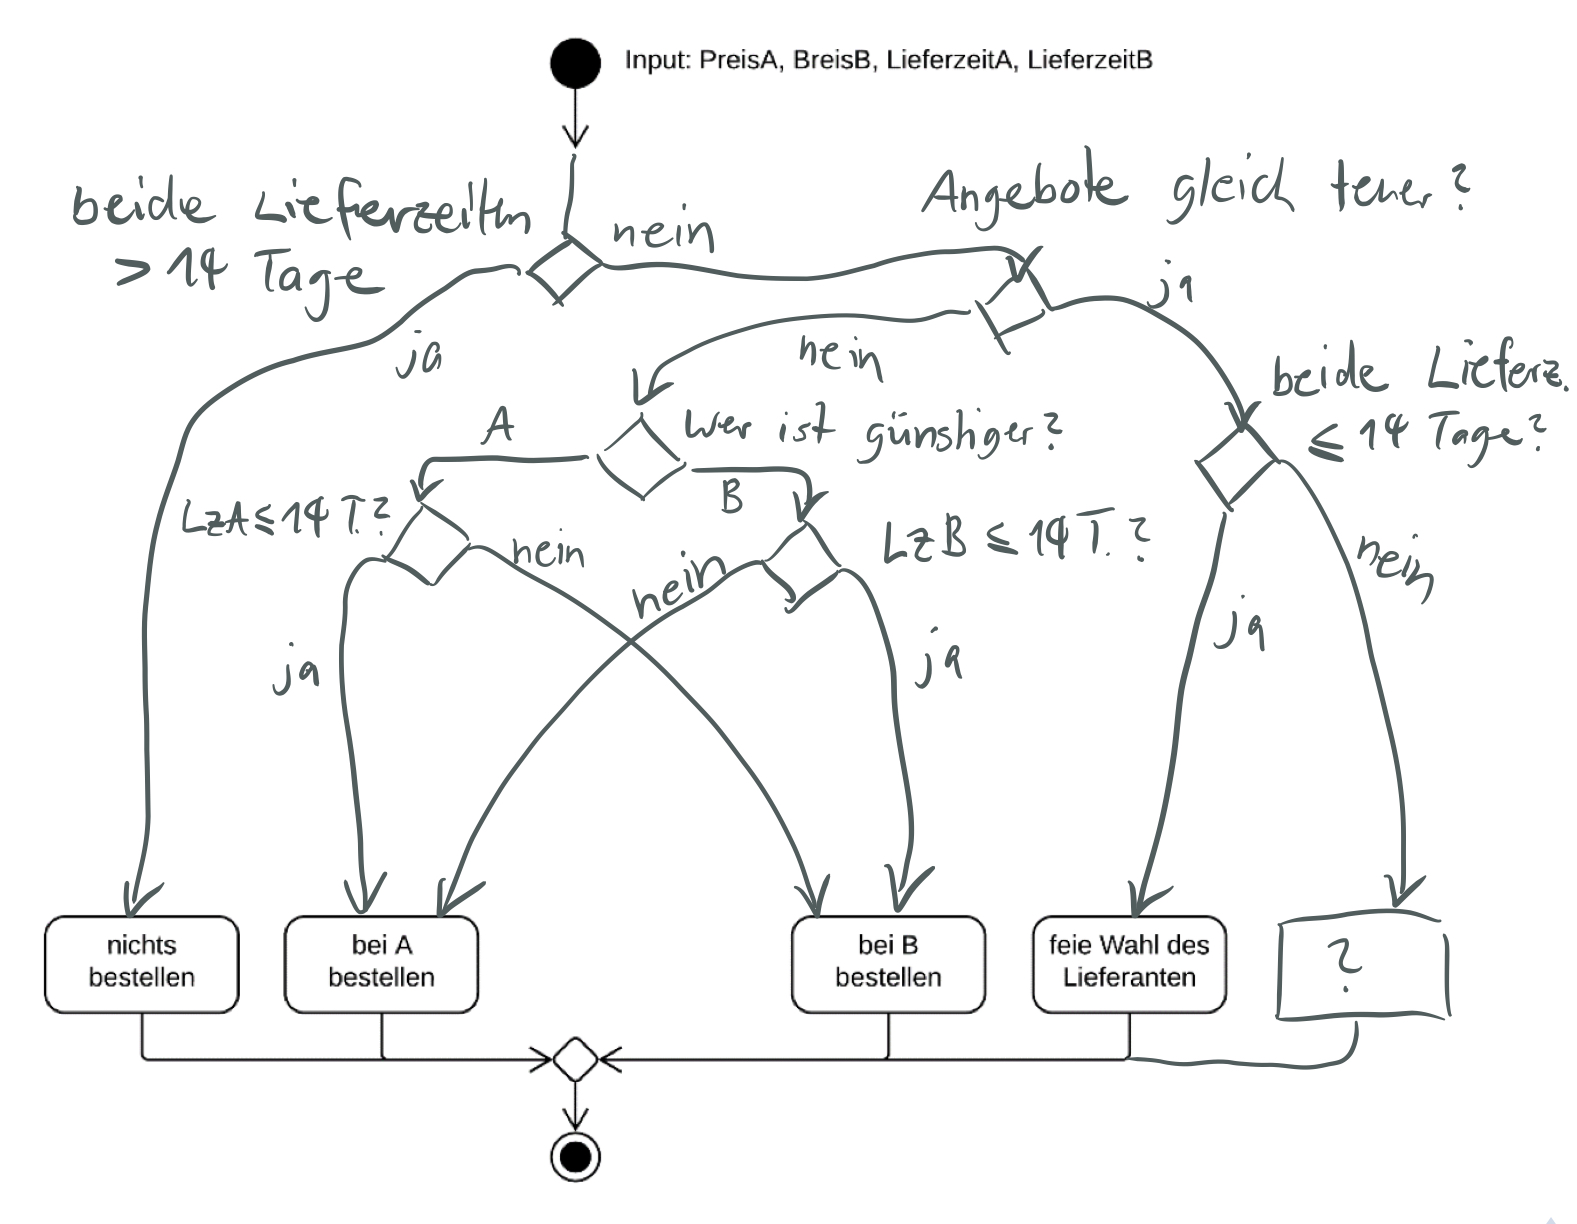 Input: PreisA, BreisB, LieferzeitA, LieferzeitB
beide Lieferzeiten
> 14 Tage
nein
Angebote gleich teuer?
ja
ja
nein
beide Lieferz.
≤ 14 Tage?
A
Wer ist günstiger?
B
LzA ≤ 14 T.?
nein
nein
LzB ≤ 14 T.?
nein
ja
ja
ja
nichts
bestellen
bei A
bestellen
bei B
bestellen
feie Wahl des
Lieferanten
?